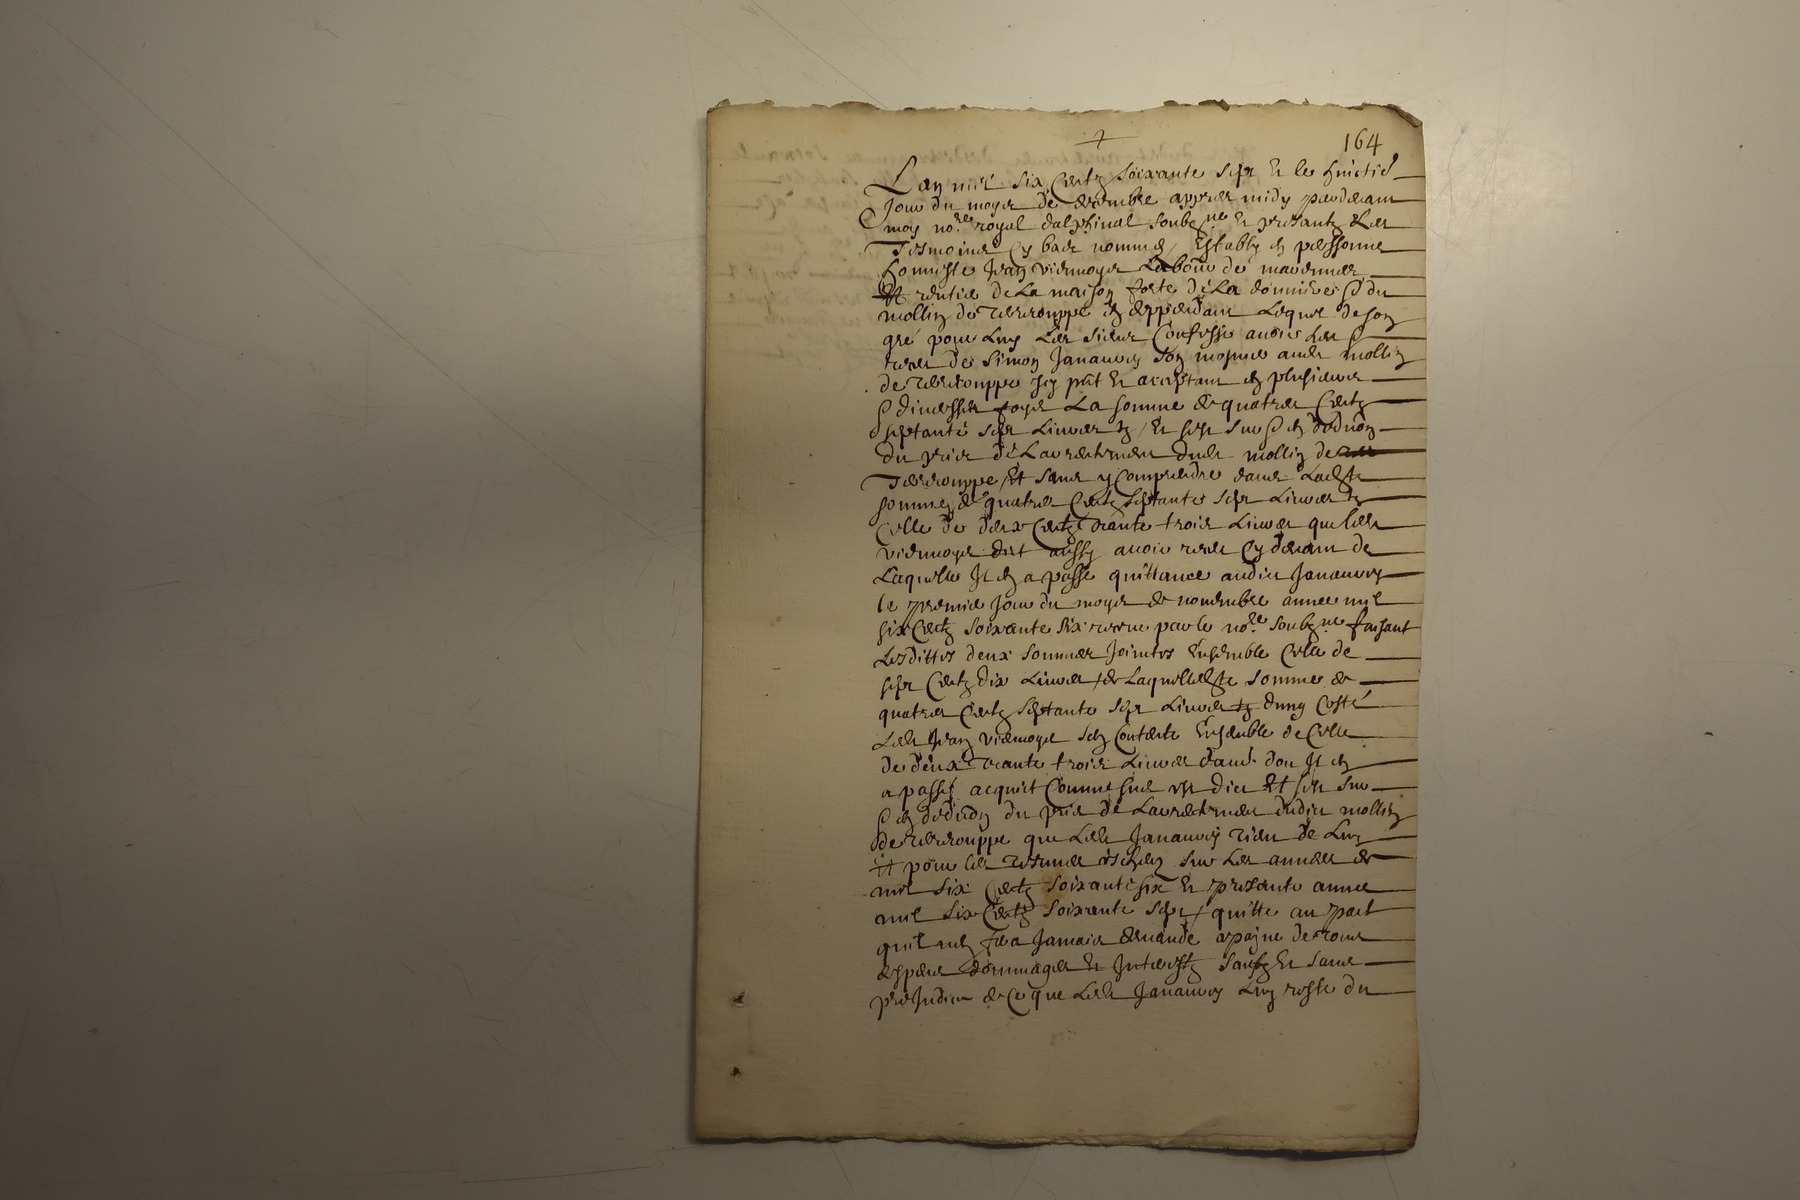 164
Lan mil six Centz soixante sept Et le huictie
Jour du moys de decembre appres midy pardevant
moy nore royal dalphinal soubzne Et presantz Les
Tesmoins Cy bas nommes Estably en personne
honneste Jean Viermoye Labour de
Et rentier de La maison forte de La du
mollin de en deppendant Lequel de son
gré pour Luy Les siens Confesse avoir heu
receu de Simon Janauoy son mosnier audit mollin
de Jcy pnt Et acceptant en plusieurs
diverses foys La somme de quatre Centz
septante sept Livres tz Et cest sur en deduon
du prix de Larrentement dudit mollin de
Et sans y Comprendre dans Ladte
somme de quatre Centz septante sept Livres tz
Celle de deux Centz trante trois Livres que ledit
Viermoye dict aussy avoir receu Cy devant de
Laquelle Jl en a passé quittance audict Janauoy
le premier Jour du moys de novembre annee mil
six Centz soixante six receue par le nore soubzne faisant
Lesdittes deux sommes Jointes Ensemble Celle de
sept Centz dix Livres de Laquelle dte somme de
quatre Centz septante sept Livres tz dung Costé
Ledit Jean Viermoye sen Contente Ensemble de Celle
de deux trante trois Livres dont Jl en
a passé acquict Comme sus est dict Et cest sur
en deduon du prix de Larrentement dudict mollin
de que Ledit Janauoy tient de Luy
Et pour les termes sur Les annees de
mil six Centz soixante six Et presente annee
mil six Centz soixante sept quitte au pact
quil nen fera Jamais demande a payne de tous
despens dommages Et Jnterestz saufz Et sans
preJudice de Ce que Ledit Janauoy Luy reste du